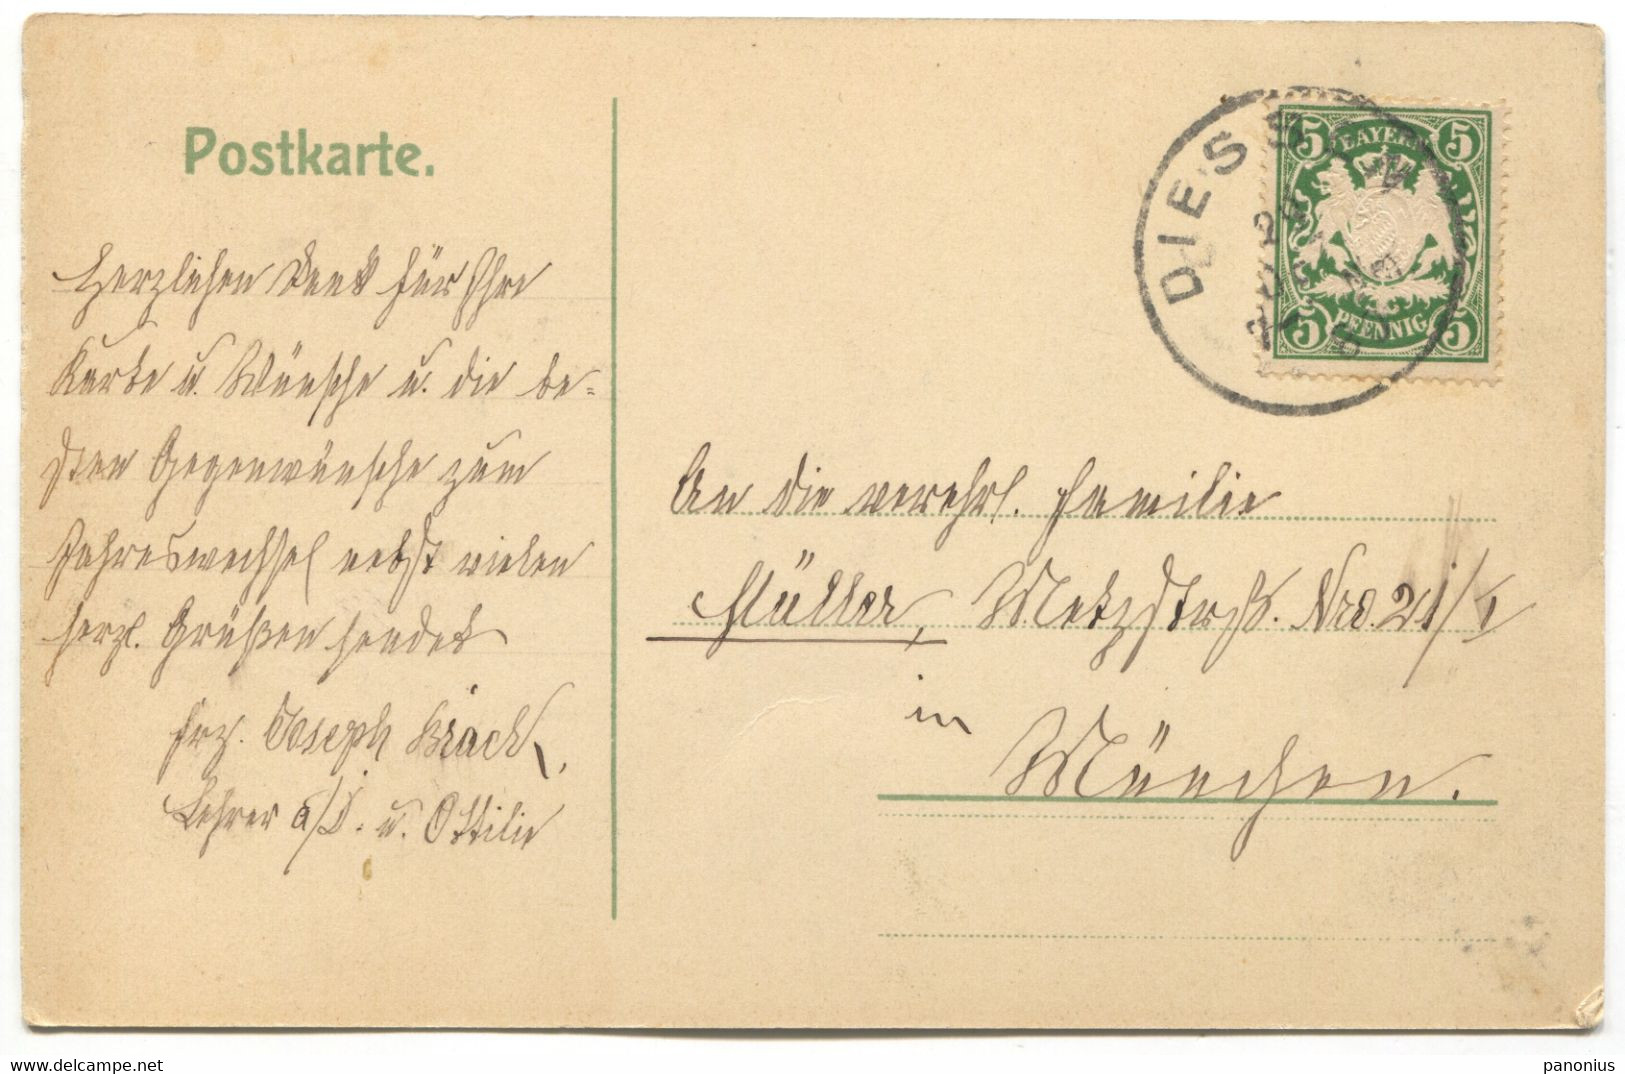 Postkarte.
Herzlichen Dank für Ihre
Karte u. Wünsche u. die be=
sten Gegenwünsche zum
Jahreswechsel nebst vielen
herzl. Grüßen sendet
Frz. Joseph Brack,
Lehrer a/D. u. Ottilie
DIESSEN
BAYERN
5 5
PFENNIG
5 5
An die verehrl. Familie
Müller, Metzstrß. Nro. 21/I
in
München.
panonius